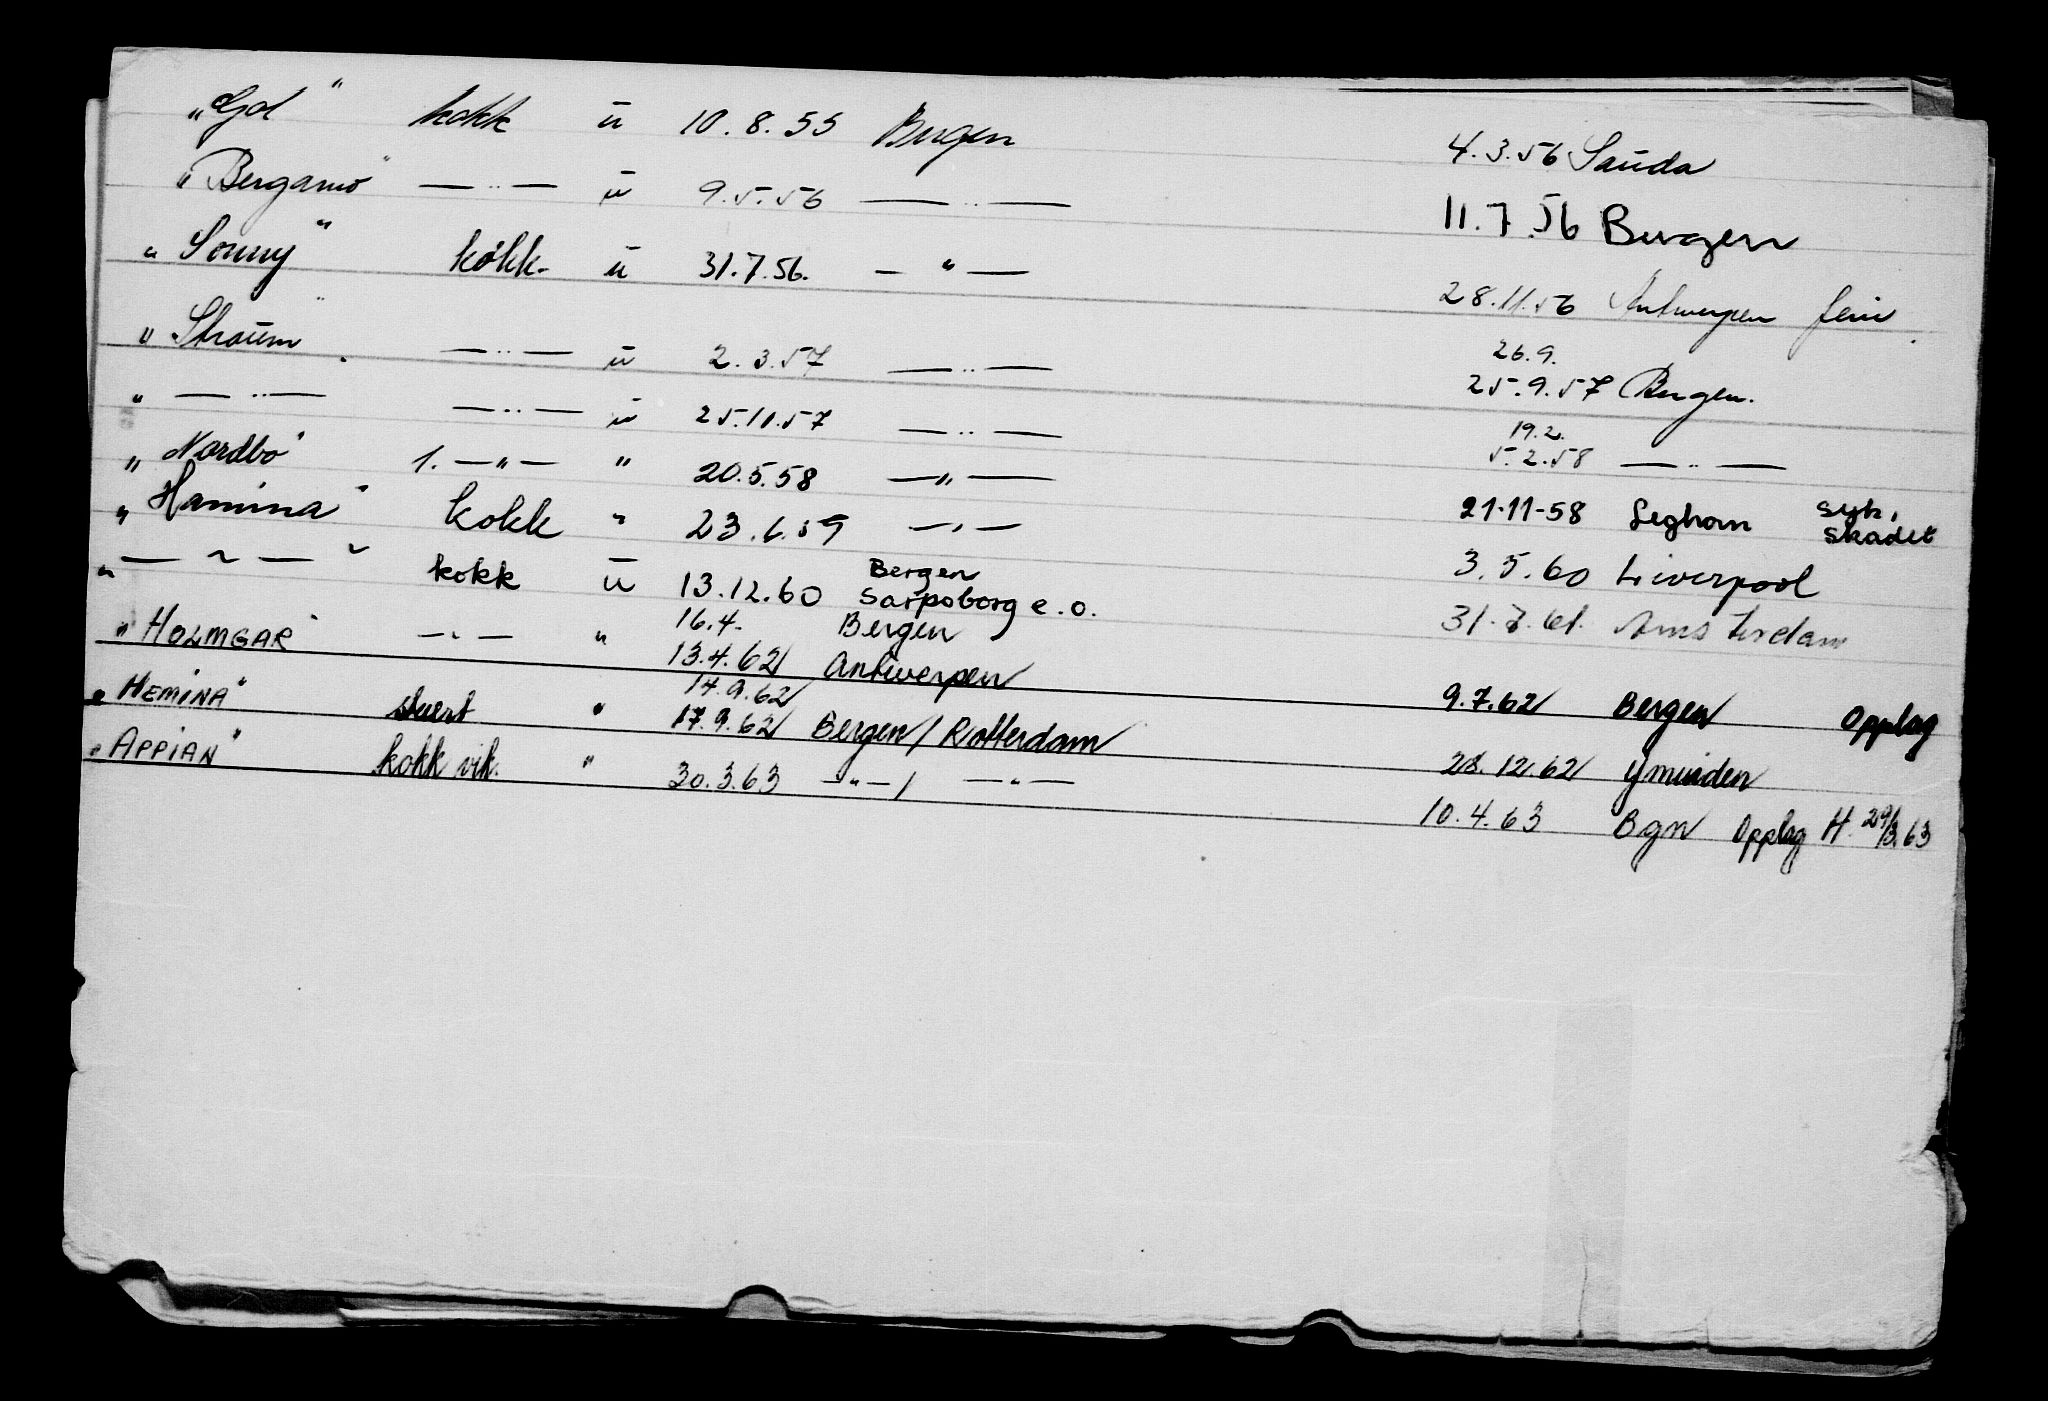 "Gol" kokk u 10.8.55 Bergen 4.3.56 Sauda
"Bergamo" —"— u 9.5.56 —"— 11.7.56 Bergen
"Sonny" kokk u 31.7.56. —"— 28.11.56 Antwerpen ferie
"Straum" —"— u 2.3.57 —"— 26.9. 25.9.57 Bergen.
" —"— —"— u 25.11.57 —"— 19.2. 5.2.58 —"—
"Nordbo" 1. —"— " 20.5.58 —"— 21-11-58 Leghorn syk, skadet
"Hamina" kokk " 23.6.59 —"— 3.5.60 Liverpool
" —"— " kokk u 13.12.60 Bergen Sarpsborg e.o. 31.7.61. Amsterdam
"HOLMGAR" —"— " 16.4. Bergen
13.4.62 Antwerpen 9.7.62 Bergen Opplag
14.9.62
"HEMINA" stuert " 17.9.62 Bergen / Rotterdam 28.12.62 Ymuiden
"APPIAN" kokk vik. " 30.3.63 —"— / —"— 10.4.63 Bgn Opplag H. 29/3.63